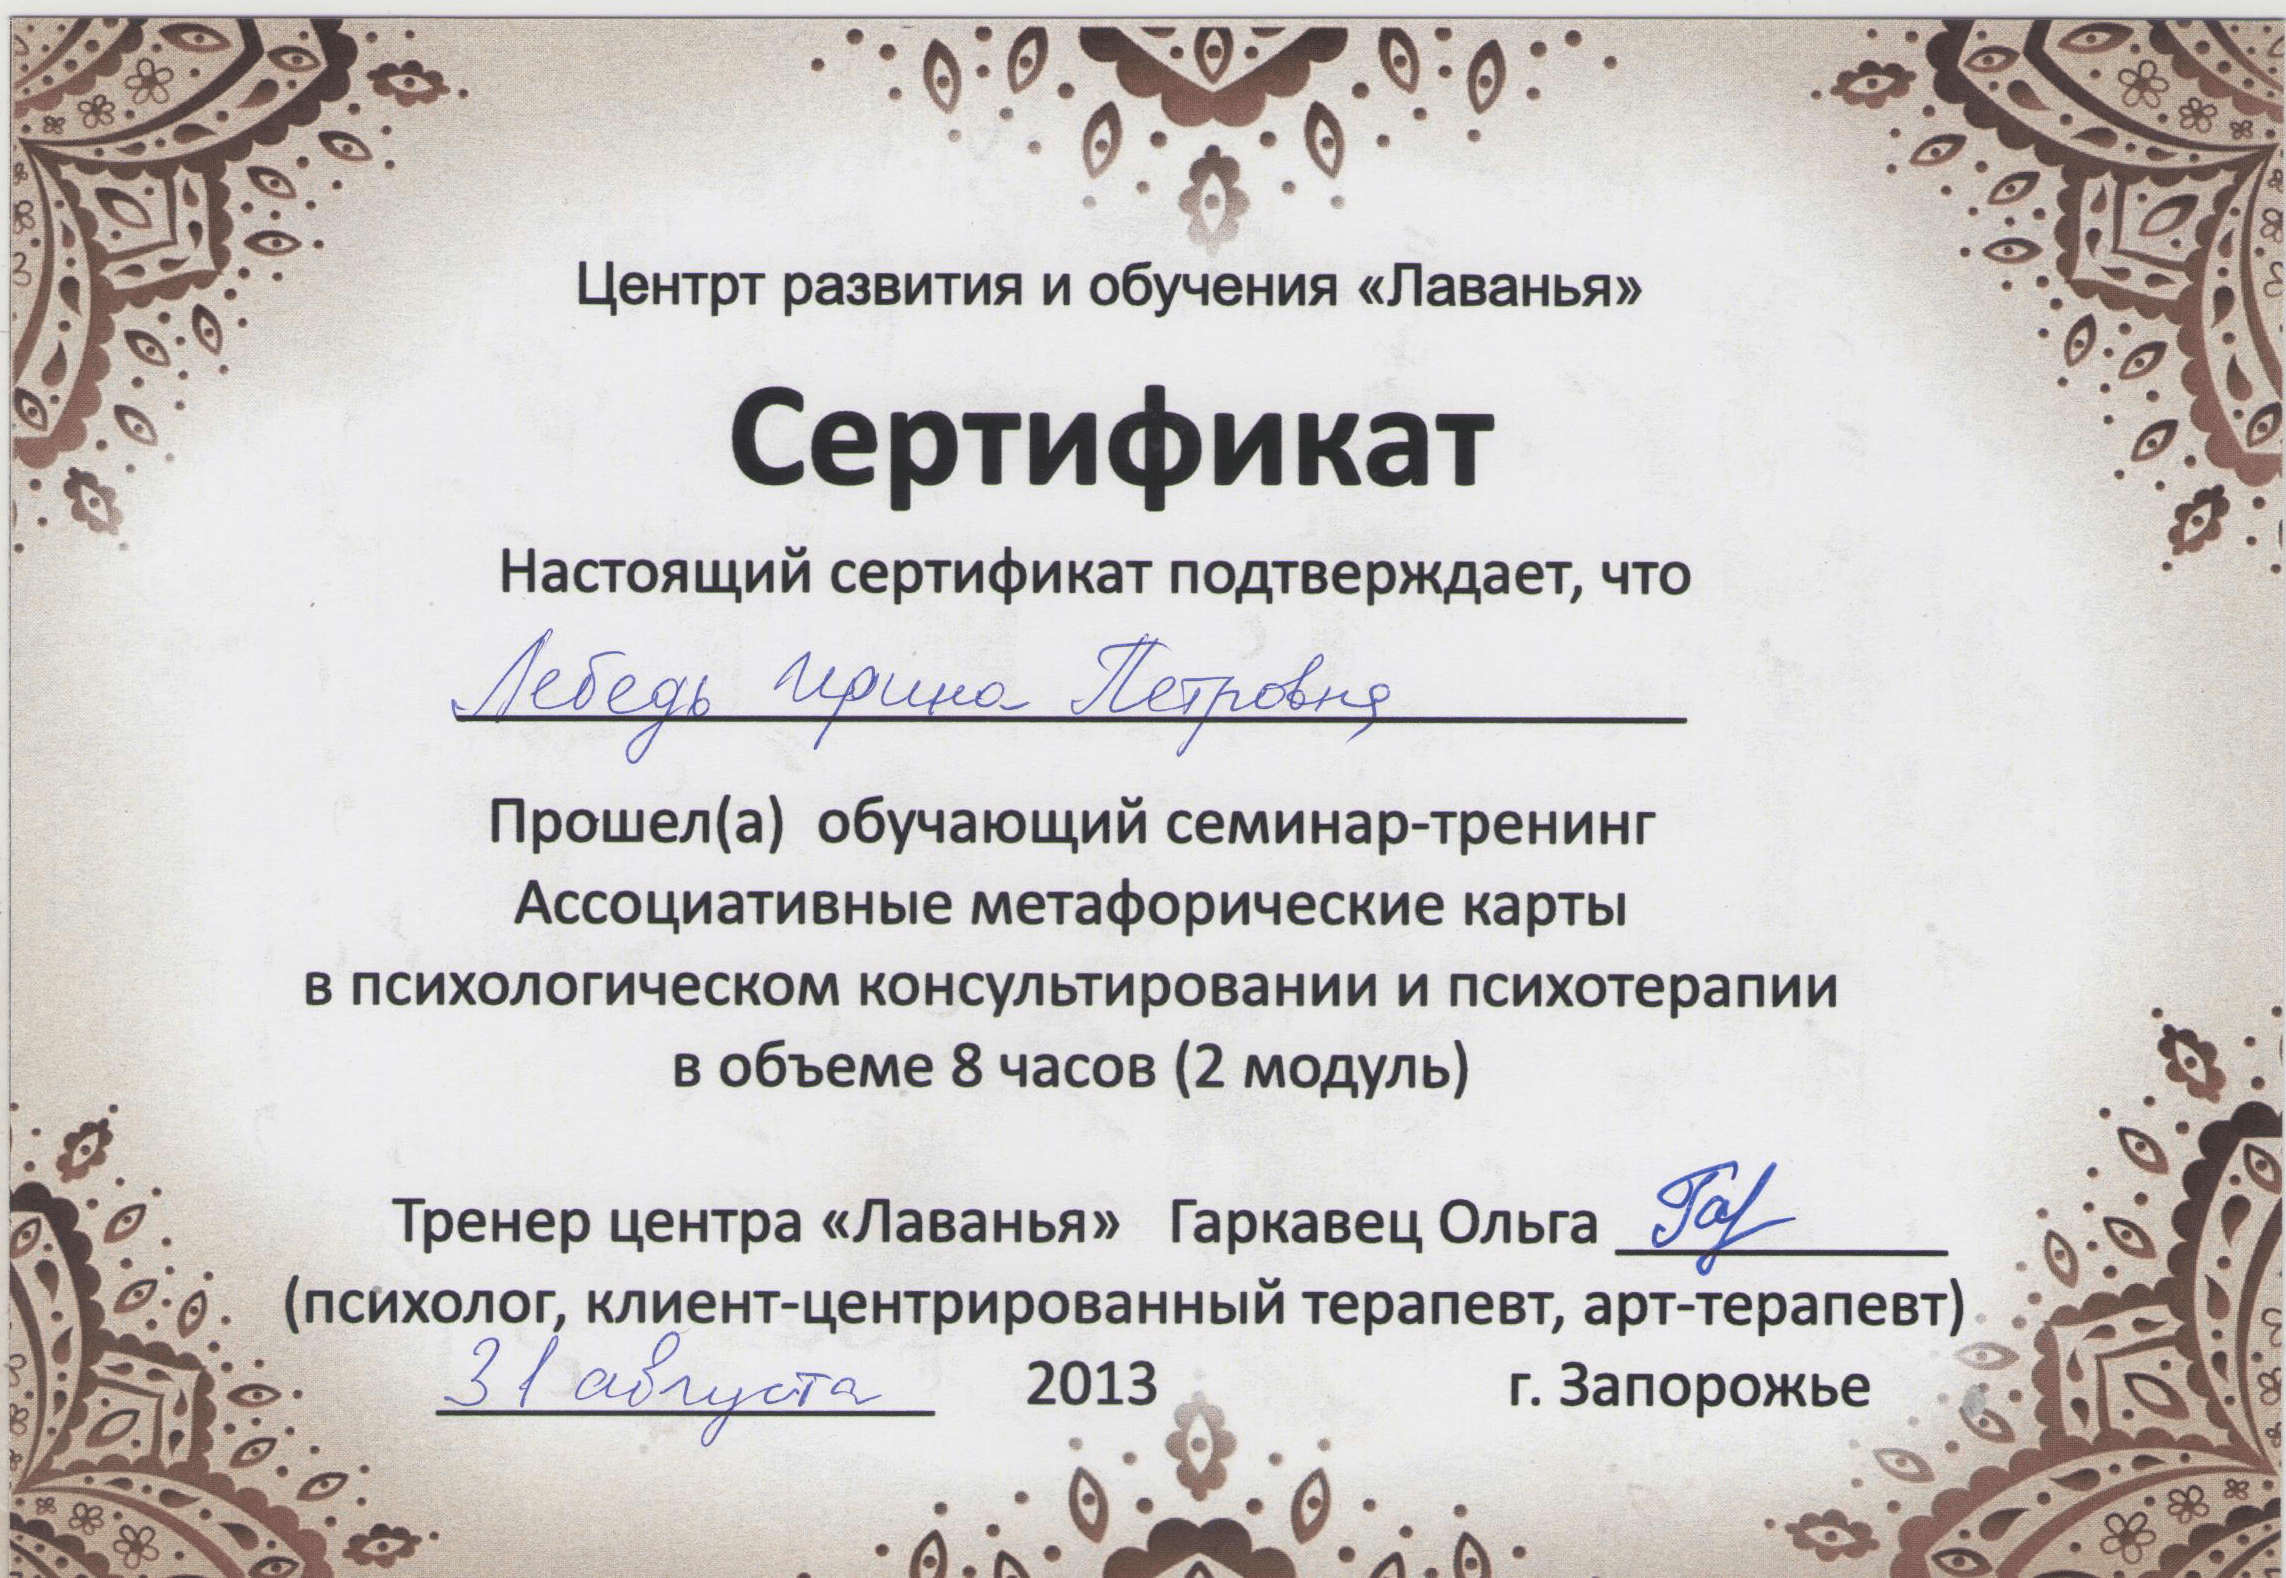 Центрт развития и обучения «Лаванья»
Сертификат
Настоящий сертификат подтверждает, что
Лебедь Ирина Петровна
Прошел(а) обучающий семинар-тренинг
Ассоциативные метафорические карты
в психологическом консультировании и психотерапии
в объеме 8 часов (2 модуль)
Тренер центра «Лаванья» Гаркавец Ольга Гар
(психолог, клиент-центрированный терапевт, арт-терапевт)
31 августа 2013 г. Запорожье